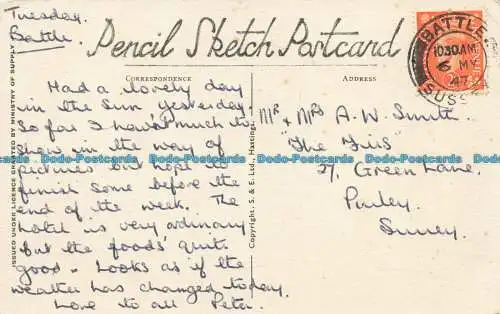 Tuesday.
Battle.
Pencil Sketch Postcard
BATTLE
10.30 AM
6 MY
47
SUSSEX
CORRESPONDENCE
ADDRESS
Had a lovely day
in the Sun yesterday.
So far I haven't much to
show in the way of
pictures but hope to
finish some before the
end of the week. The
hotel is very ordinary
but the foods' quite
good. Looks as if the
weather has changed today.
Love to all Peter.
Mr & Mrs A. W. Smith.
"The Firs"
27, Green Lane,
Purley.
Surrey.
ISSUED UNDER LICENCE GRANTED BY MINISTRY OF SUPPLY
Copyright, S. & E. Ltd., Hastings.
Dodo-Postcards Dodo-Postcards Dodo-Postcards Dodo-Postcards Dodo-Postcards